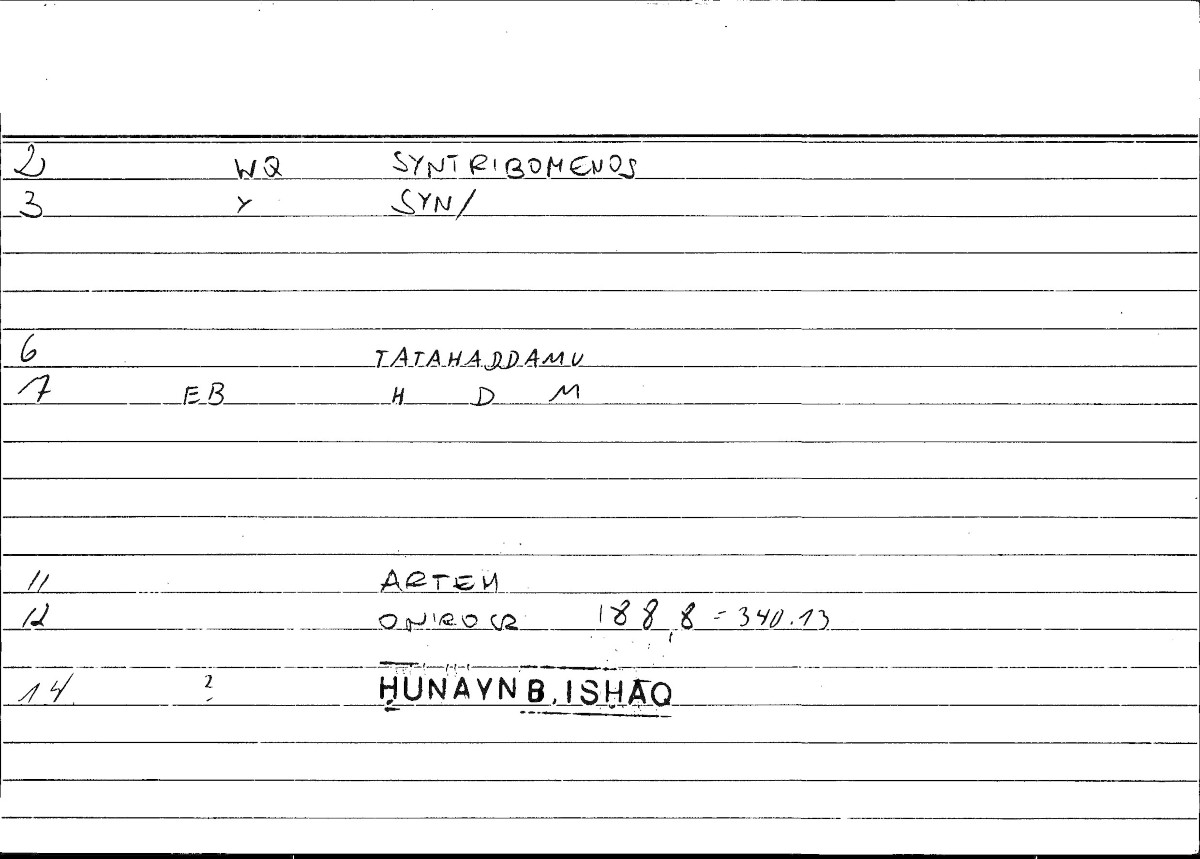 2 WQ SYNTRIBOMENOS
3 Y SYN/
6 TATAHADDAMU
7 EB H D M
11 ARTEM
12 ONIROCR 188,8 = 340.13
14 2 ḤUNAYN B. ISḤĀQ